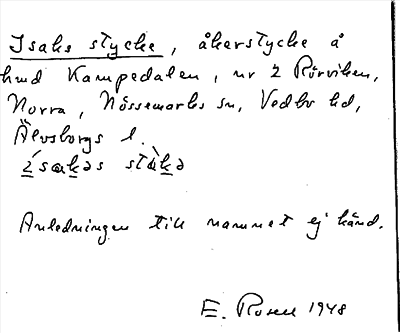 Isaks stycke, åkerstycke å
hmd Kampedalen, nr 2 Rörviken,
Norra, Nössemarks sn, Vedbo hd,
Älvsborgs l.
ísakəs stỳkə
Anledningen till namnet ej känd.
E. Rosell 1948